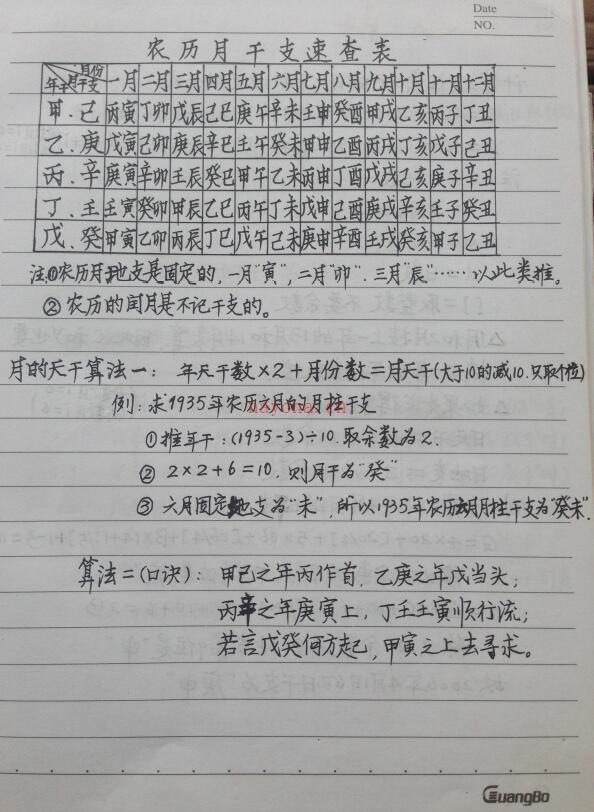 Date
NO.
农历月干支速查表
年干 月干支 月份 一月 二月 三月 四月 五月 六月 七月 八月 九月 十月 十一月 十二月
甲.己 丙寅 丁卯 戊辰 己巳 庚午 辛未 壬申 癸酉 甲戌 乙亥 丙子 丁丑
乙.庚 戊寅 己卯 庚辰 辛巳 壬午 癸未 甲申 乙酉 丙戌 丁亥 戊子 己丑
丙.辛 庚寅 辛卯 壬辰 癸巳 甲午 乙未 丙申 丁酉 戊戌 己亥 庚子 辛丑
丁.壬 壬寅 癸卯 甲辰 乙巳 丙午 丁未 戊申 己酉 庚戌 辛亥 壬子 癸丑
戊.癸 甲寅 乙卯 丙辰 丁巳 戊午 己未 庚申 辛酉 壬戌 癸亥 甲子 乙丑
注:①农历月地支是固定的,一月"寅",二月"卯".三月"辰"……以此类推。
②农历的闰月是不记干支的。
月的天干算法一: 年天干数×2+月份数=月天干(大于10的减10.只取个位)
例:求1935年农历六月的月柱干支
nayona.cn
①推年干:(1935-3)÷10.取余数为2.
②2×2+6=10,则月干为"癸"
③六月固定地支为"未",所以1935年农历六月月柱干支为"癸未".
算法二(口诀): 甲己之年丙作首,乙庚之年戊当头;
丙辛之年庚寅上,丁壬壬寅顺行流;
若言戊癸何方起,甲寅之上去寻求。
GuangBo